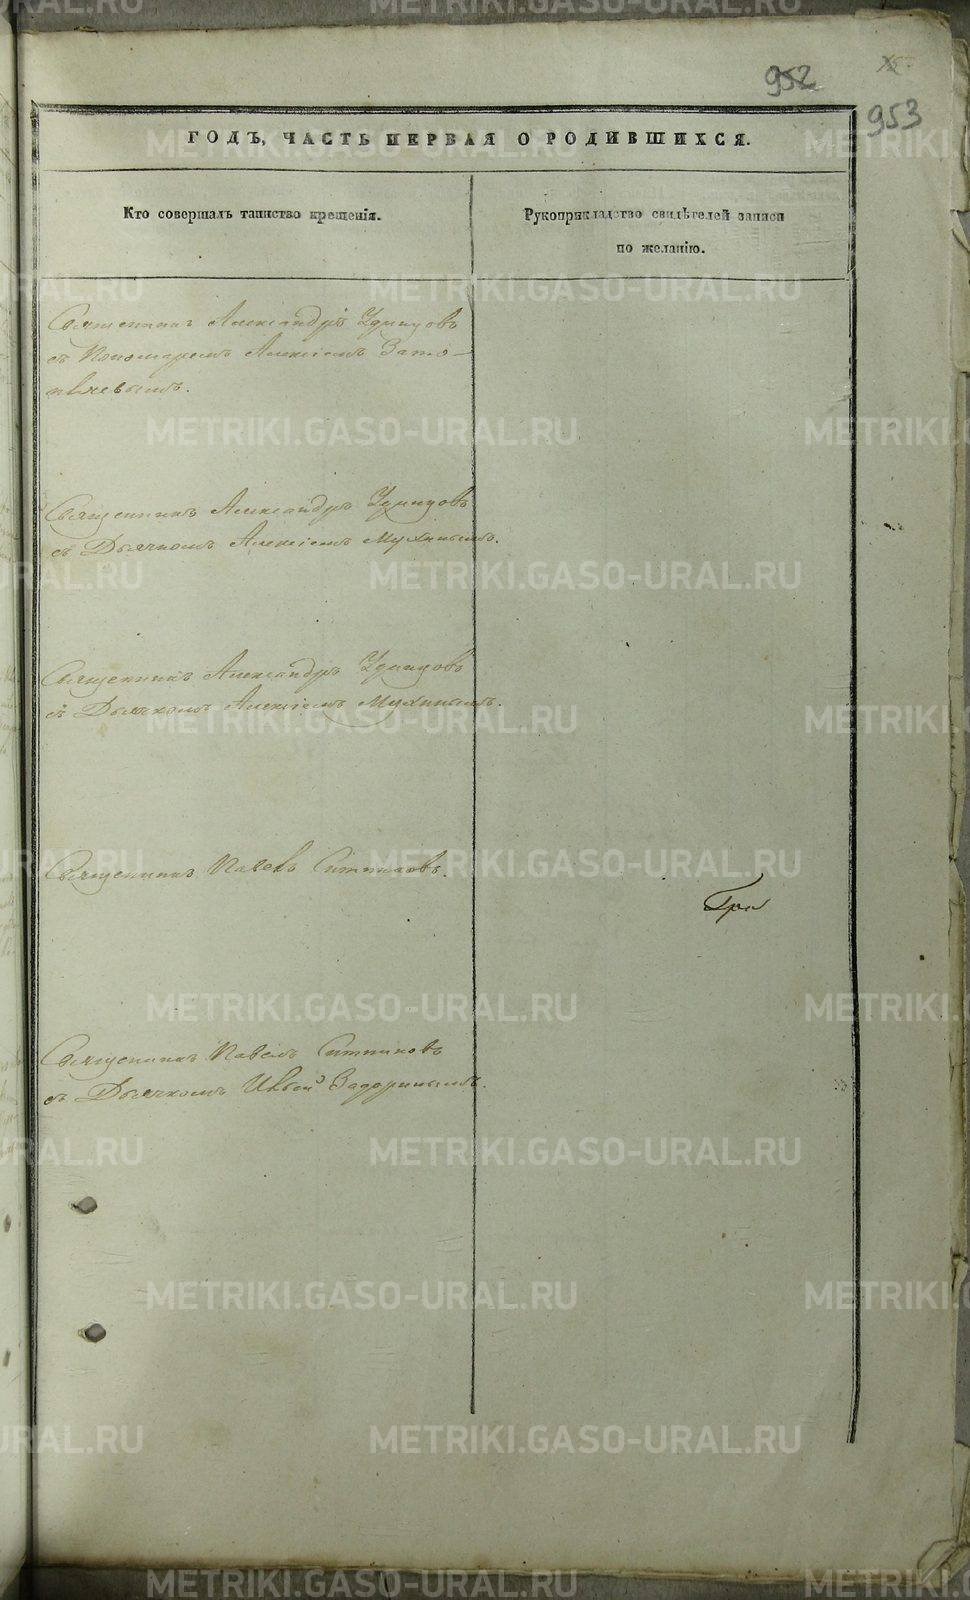 952
953
ГОДЪ, ЧАСТЬ ПЕРВАЯ О РОДИВШИХСЯ.
Кто совершалъ таинство крещенія.
Рукоприкладство свидѣтелей записи
по желанію.
Священникъ Александръ Удинцовъ
съ Пономаремъ Алексіемъ Зато-
пляевымъ.
Священникъ Александръ Удинцовъ
съ Дьячкомъ Алексіемъ Мухинымъ.
Священникъ Александръ Удинцовъ
съ Дьячкомъ Алексіемъ Мухинымъ.
Священникъ Павелъ Ситниковъ.
Священникъ Павелъ Ситниковъ
съ Дьячкомъ Задоринымъ.
METRIKI.GASO-URAL.RU